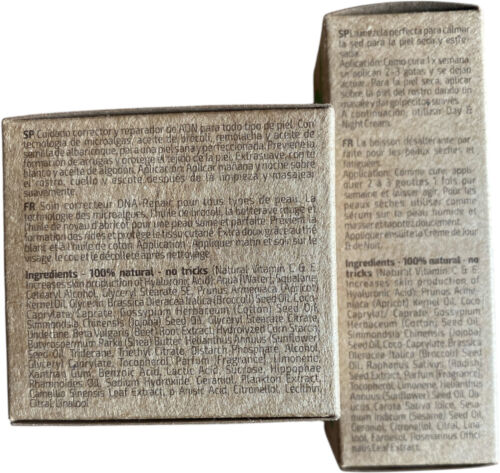 SP Cuidado corrector y reparador de ADN para todo tipo de piel. Con
tecnología de microalgas, aceite de brócoli, remolacha y aceite de
semilla de albaricoque, para una piel sana y perfeccionada. Previene la
formación de arrugas y protege el tejido de la piel. Extra suave, con té
blanco y aceite de algodón. Aplicación: Aplicar mañana y noche sobre
el rostro, cuello y escote después de la limpieza y masajea
suavemente.
FR Soin correcteur DNA-Repair pour tous types de peau. La
technologie des microalgues, l'huile de brocoli, la betterave rouge et
l'huile de noyau d'abricot pour une peau saine et parfaite. Prévient la
formation des rides et protège le tissu cutané. Extra doux grâce au thé
blanc et à l'huile de coton. Application: Appliquer matin et soir sur le
visage, le cou et le décolleté après nettoyage.
Ingredients - 100% natural - no tricks (Natural Vitamin C & E.
Increases skin production of Hyaluronic Acid): Aqua (Water), Squalane,
Cetearyl Alcohol, Glyceryl Stearate SE, Prunus Armeniaca (Apricot)
Kernel Oil, Glycerin, Brassica Oleracea Italica (Broccoli) Seed Oil, Coco-
Caprylate, Caprate, Gossypium Herbaceum (Cotton) Seed Oil,
Simmondsia Chinensis (Jojoba) Seed Oil, Glyceryl Stearate Citrate,
Undecane, Beta Vulgaris (Beet) Root Extract, Hydrolyzed Corn Starch,
Butyrospermum Parkii (Shea) Butter, Helianthus Annuus (Sunflower)
Seed Oil, Tridecane, Triethyl Citrate, Distarch Phosphate, Alcohol,
Glyceryl Caprylate, Tocopherol, Parfum (Fragrance), Limonene,
Xanthan Gum, Benzoic Acid, Lactic Acid, Sucrose, Hippophae
Rhamnoides Oil, Sodium Hydroxide, Geraniol, Plankton Extract,
Camellia Sinensis Leaf Extract, p-Anisic Acid, Citronellol, Lecithin,
Citral, Linalool
SP La mezcla perfecta para calmar
la sed para la piel seca y estre-
sada.
Aplicación: Como cura 1x semana,
se aplican 2-3 gotas y se dejan
actuar. Para la piel seca, aplicar
sobre la piel del rostro dando un
masaje y dar golpecitos suaves.
A continuación, utilizar Day &
Night Cream.
FR La boisson désaltérante par-
faite pour les peaux sèches et
fatiguées.
Application: Comme cure, appliquer
2 à 3 gouttes 1 fois par
semaine et laisser agir. Pour les
peaux sèches utiliser comme
sérum sur la peau humide et
masser et tapoter doucement.
Appliquer ensuite la Crème de Jour
& de Nuit.
Ingredients - 100% natural - no
tricks (Natural Vitamin C & E.
Increases skin production of
Hyaluronic Acid): Prunus Arme-
niaca (Apricot) Kernel Oil, Coco-
Caprylate, Simmondsia
Chinensis (Jojoba)
Seed Oil, Coco-Caprylate, Brassica
Oleracea Italica (Broccoli) Seed
Oil, Raphanus Sativus (Radish)
Seed Extract, Parfum (Fragrance),
Tocopherol, Limonene, Helianthus
Annuus (Sunflower) Seed Oil,
Daucus Carota Sativa Juice, Sesa-
mum Indicum (Sesame) Seed Oil,
Geraniol, Citronellol, Citral, Lina-
lool, Farnesol, Rosmarinus Offici-
nalis Leaf Extract.